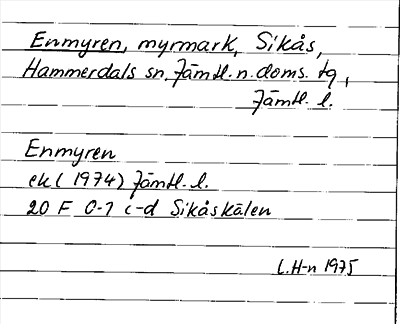 Enmyren, myrmark, Sikås,
Hammerdals sn, Jämtl. n. doms. tg,
Jämtl. l.
Enmyren
ek (1974) Jämtl. l.
20 F 0-1 c-d Sikåskälen
L.H-n 1975